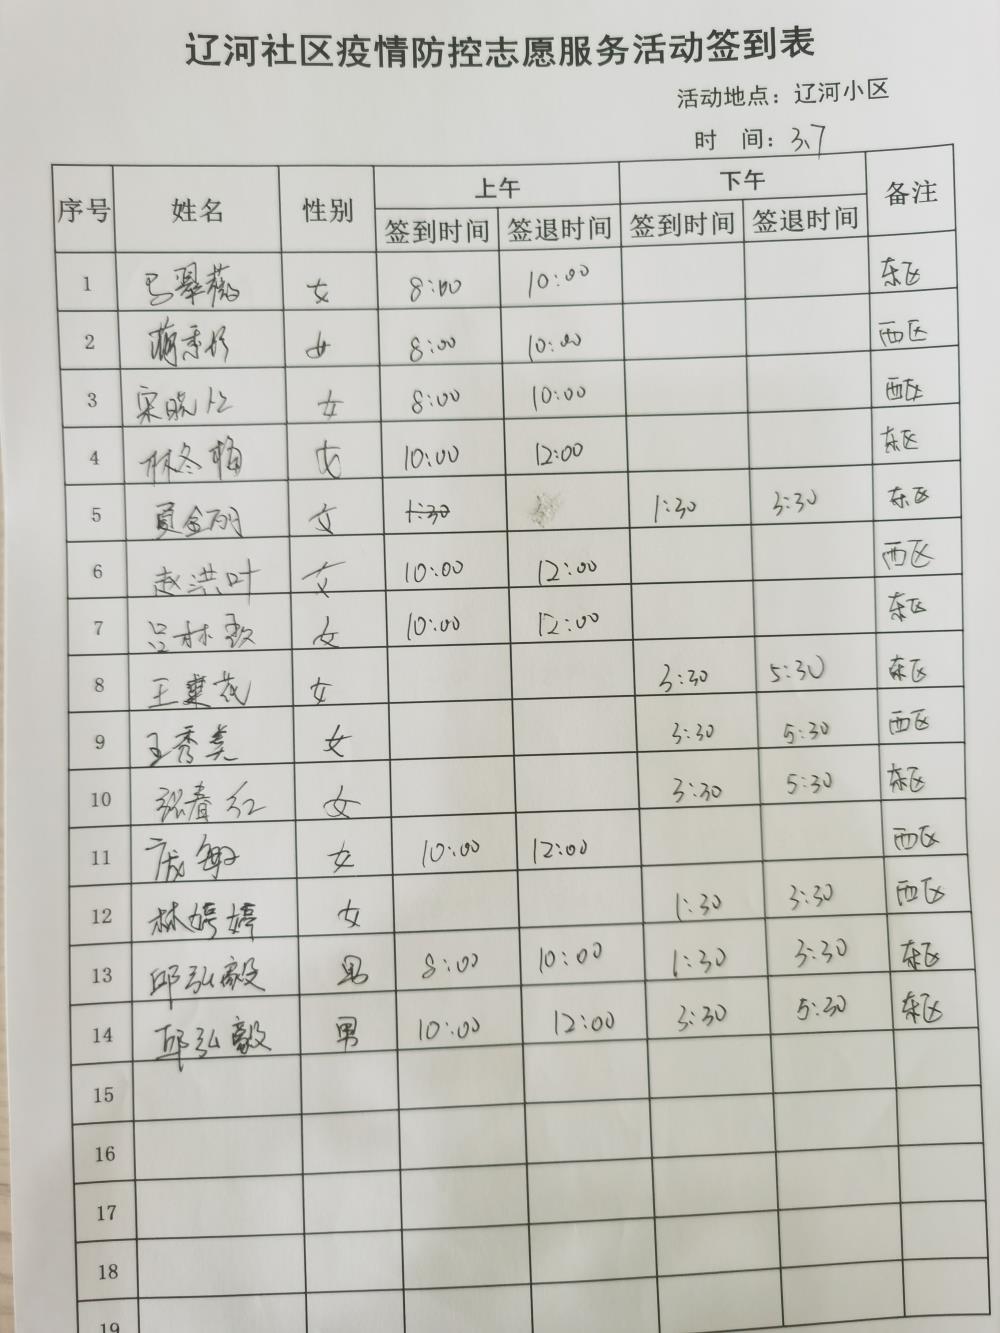 辽河社区疫情防控志愿服务活动签到表
活动地点：辽河小区
时 间：3.7
序号 姓名 性别 上午 下午 备注
签到时间 签退时间 签到时间 签退时间
1 马翠薇 女 8:00 10:00 东区
2 女 8:00 10:00 西区
3 宋晓 女 8:00 10:00 西区
4 林冬梅 女 10:00 12:00 东区
5 女 1:30 1:30 3:30 东区
6 赵洪叶 女 10:00 12:00 西区
7 吕林 女 10:00 12:00 东区
8 王 女 3:30 5:30 东区
9 王秀 女 3:30 5:30 西区
10 张春红 女 3:30 5:30 东区
11 庞敏 女 10:00 12:00 西区
12 林婷婷 女 1:30 3:30 西区
13 邱弘毅 男 8:00 10:00 1:30 3:30 东区
14 邱弘毅 男 10:00 12:00 3:30 5:30 东区
15
16
17
18
19